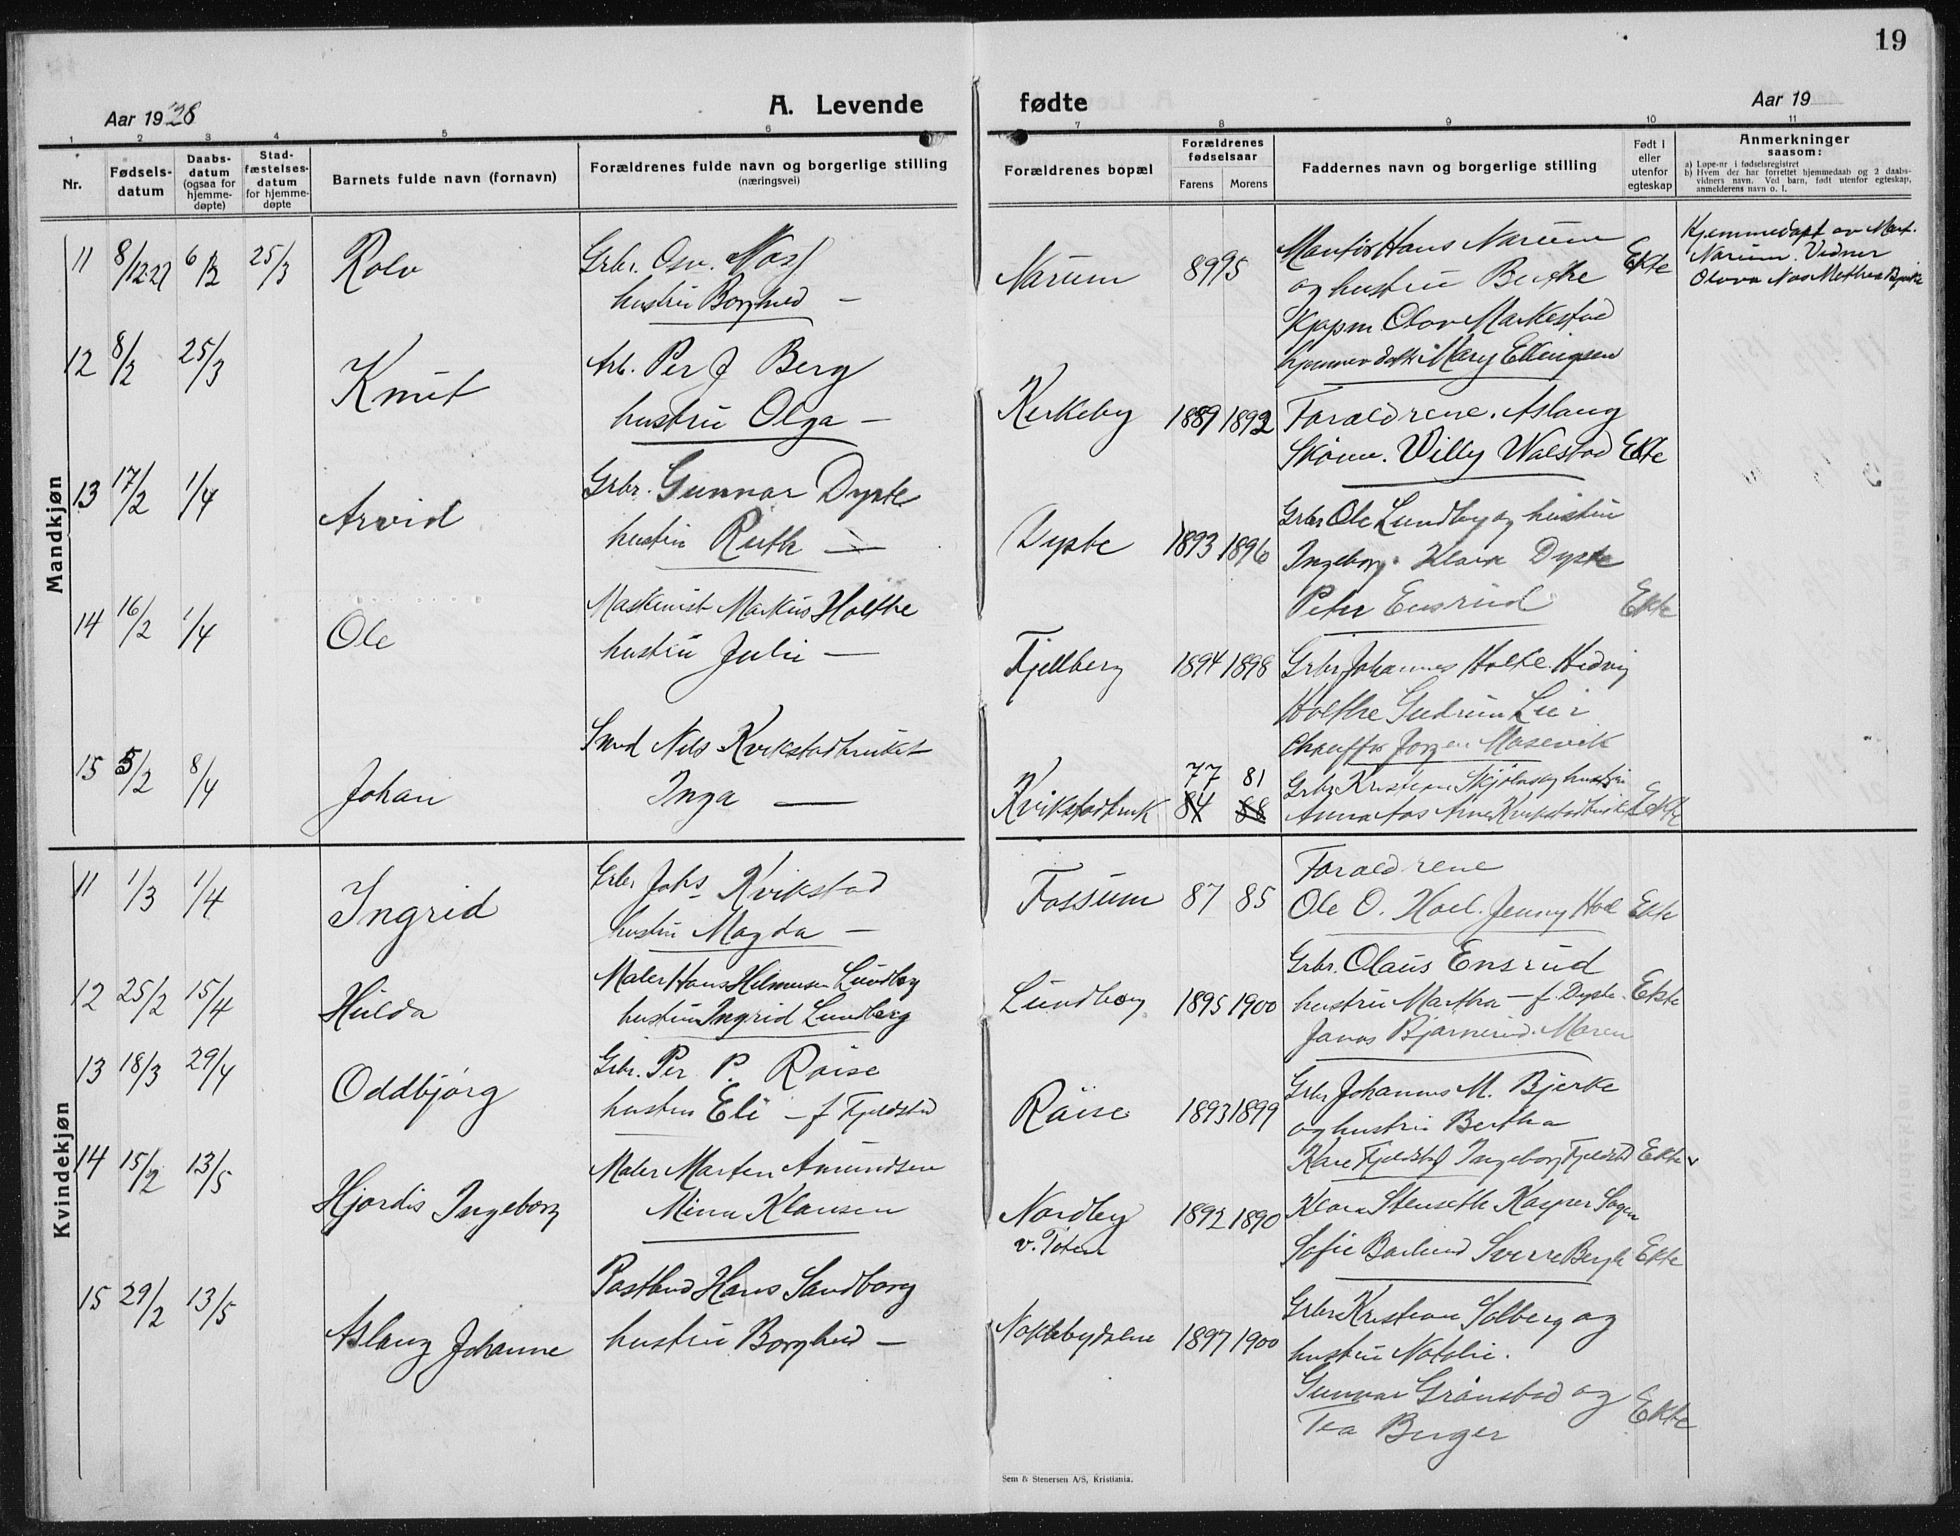 19
Aar 1928
A. Levende
fødte
Aar 19
1 2 3 4 5 6 7 8 9 10 11
Nr.
Fødsels-
datum
Daabs-
datum
(ogsaa for
hjemme-
døpte)
Stad-
fæstelses-
datum
for hjemme-
døpte
Barnets fulde navn (fornavn)
Forældrenes fulde navn og borgerlige stilling
(næringsvei)
Forældrenes bopæl
Forældrenes
fødselsaar
Farens Morens
Faddernes navn og borgerlige stilling
Født i
eller
utenfor
egteskap
Anmerkninger
saasom:
a) Løpe-nr i fødselsregistret
b) Hvem der har forrettet hjemmedaab og 2 daabs-
vidners navn. Ved barn, født utenfor egteskap,
anmelderens navn o. l.
Mandkjøn
11 8/12 27 6/2 25/3 Rolv
Grbr. Osv. Næss
hustru Borghild —
Narum 89 95
Montør Hans Narum
og hustru Berthe
Kjøpm Olav Markestad
Mary Ellingsen
Ekte
Hjemmedøpt av Mart.
Narum. Vidner
Olova Næs Methea Bjerke
12 8/2 25/3 Knut
Arb. Per J Berg
hustru Olga —
Kirkeby 1889 1892
Forældrene. Aslaug
Willy Walstad Ekte
13 17/2 1/4 Arvid
Grbr. Gunnar Dyste
hustru Ruth —
Dyste 1893 1896
Grbr Ole Lundby og hustru
Ingeborg. Klara Dyste
Peter Ensrud Ekte
14 16/2 1/4 Ole
Maskinist Markus Holthe
hustru Julie —
Fjellberg 1894 1898
Grbr Johannes Holthe. Hedvig
Holthe Gudrun Lier
Chauffør Jørgen Mosevik
15 5/2 8/4 Johan
Smed Nils Kvikstadbruket
Inga —
Kvikstadbruk 77 81
84 88
Grbr Kristian og hustru
Anna Aas Arne Kvikstadbruket Ekte
Kvindekjøn
11 1/3 1/4 Ingrid
Grbr Johs Kvikstad
hustru Magda —
Fossum 87 85
Forældrene
Ole O. Hoel. Jenny Hoel Ekte
12 25/2 15/4 Hulda
Maler Hans Helmersen Lundberg
hustru Ingrid Lundberg
Lundberg 1895 1900
Grbr. Olaus Ensrud
hustru Martha — f. Dyste. Ekte
Jonas Bjørnerud. Maren
13 18/3 29/4 Oddbjørg
Grbr. Per P. Røise
hustru Eli — f Fjeldstad
Røise 1893 1899
Grbr Johannes M. Bjerke
og hustru Bertha
Kare Fjeldstad Ingeborg Fjeldstad Ekte
14 15/2 13/5 Hjørdis Ingeborg
Maler Marten Amundsen
Mina Klausen
Nordby
v. Toten
1892 1890
Klara Stenseth Kasper Sogn
Sofie Baklund Sverre Bergh Ekte
15 29/2 13/5 Aslaug Johanne
Postbud Hans Sandborg
hustru Borghild —
Nøklebydalene 1897 1900
Grbr Kristian Solberg og
hustru Natalie.
Gunnar Grønstad og
Tea Berger
Ekte
Sem & Stenersen A/S, Kristiania.